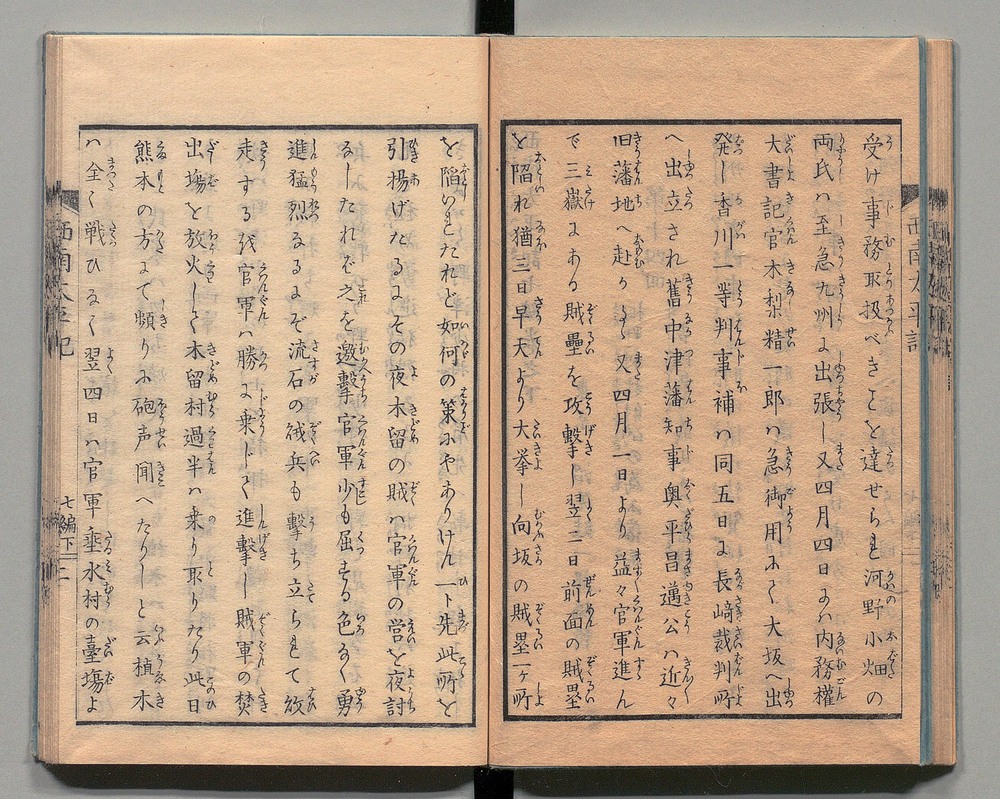 受け事務取扱べきことを達せられ河野小畑の
両氏ハ至急九州に出張し又四月四日にハ内務權
大書記官木梨精一郎ハ急御用にて大坂へ出
発し香川一等判事補ハ同五日に長﨑裁判所
へ出立され舊中津藩知事奥平昌邁公ハ近々
旧藩地へ赴かる又四月一日より益々官軍進ん
で三嶽にある賊壘を攻撃し翌三日前面の賊塁
を陥れ猶三日早天より大挙し向坂の賊塁一ヶ所
を陥いきたれと如何の策にやありけん一ト先此所を
引揚げたるにその夜木留の賊ハ官軍の営を夜討
なしたれど之を邀撃官軍少も屈する色なく勇
進猛烈なるにぞ流石の賊兵も撃ち立られて敗
走する状官軍ハ勝に乗じて進撃し賊軍の焚
出塲を放火して木留村過半ハ乗り取りたり此日
熊本の方にて頻りに砲声聞へたりしと云植木
ハ全く戦ひなく翌四日ハ官軍垂水村の臺塲よ
西南太平記
七編下
二